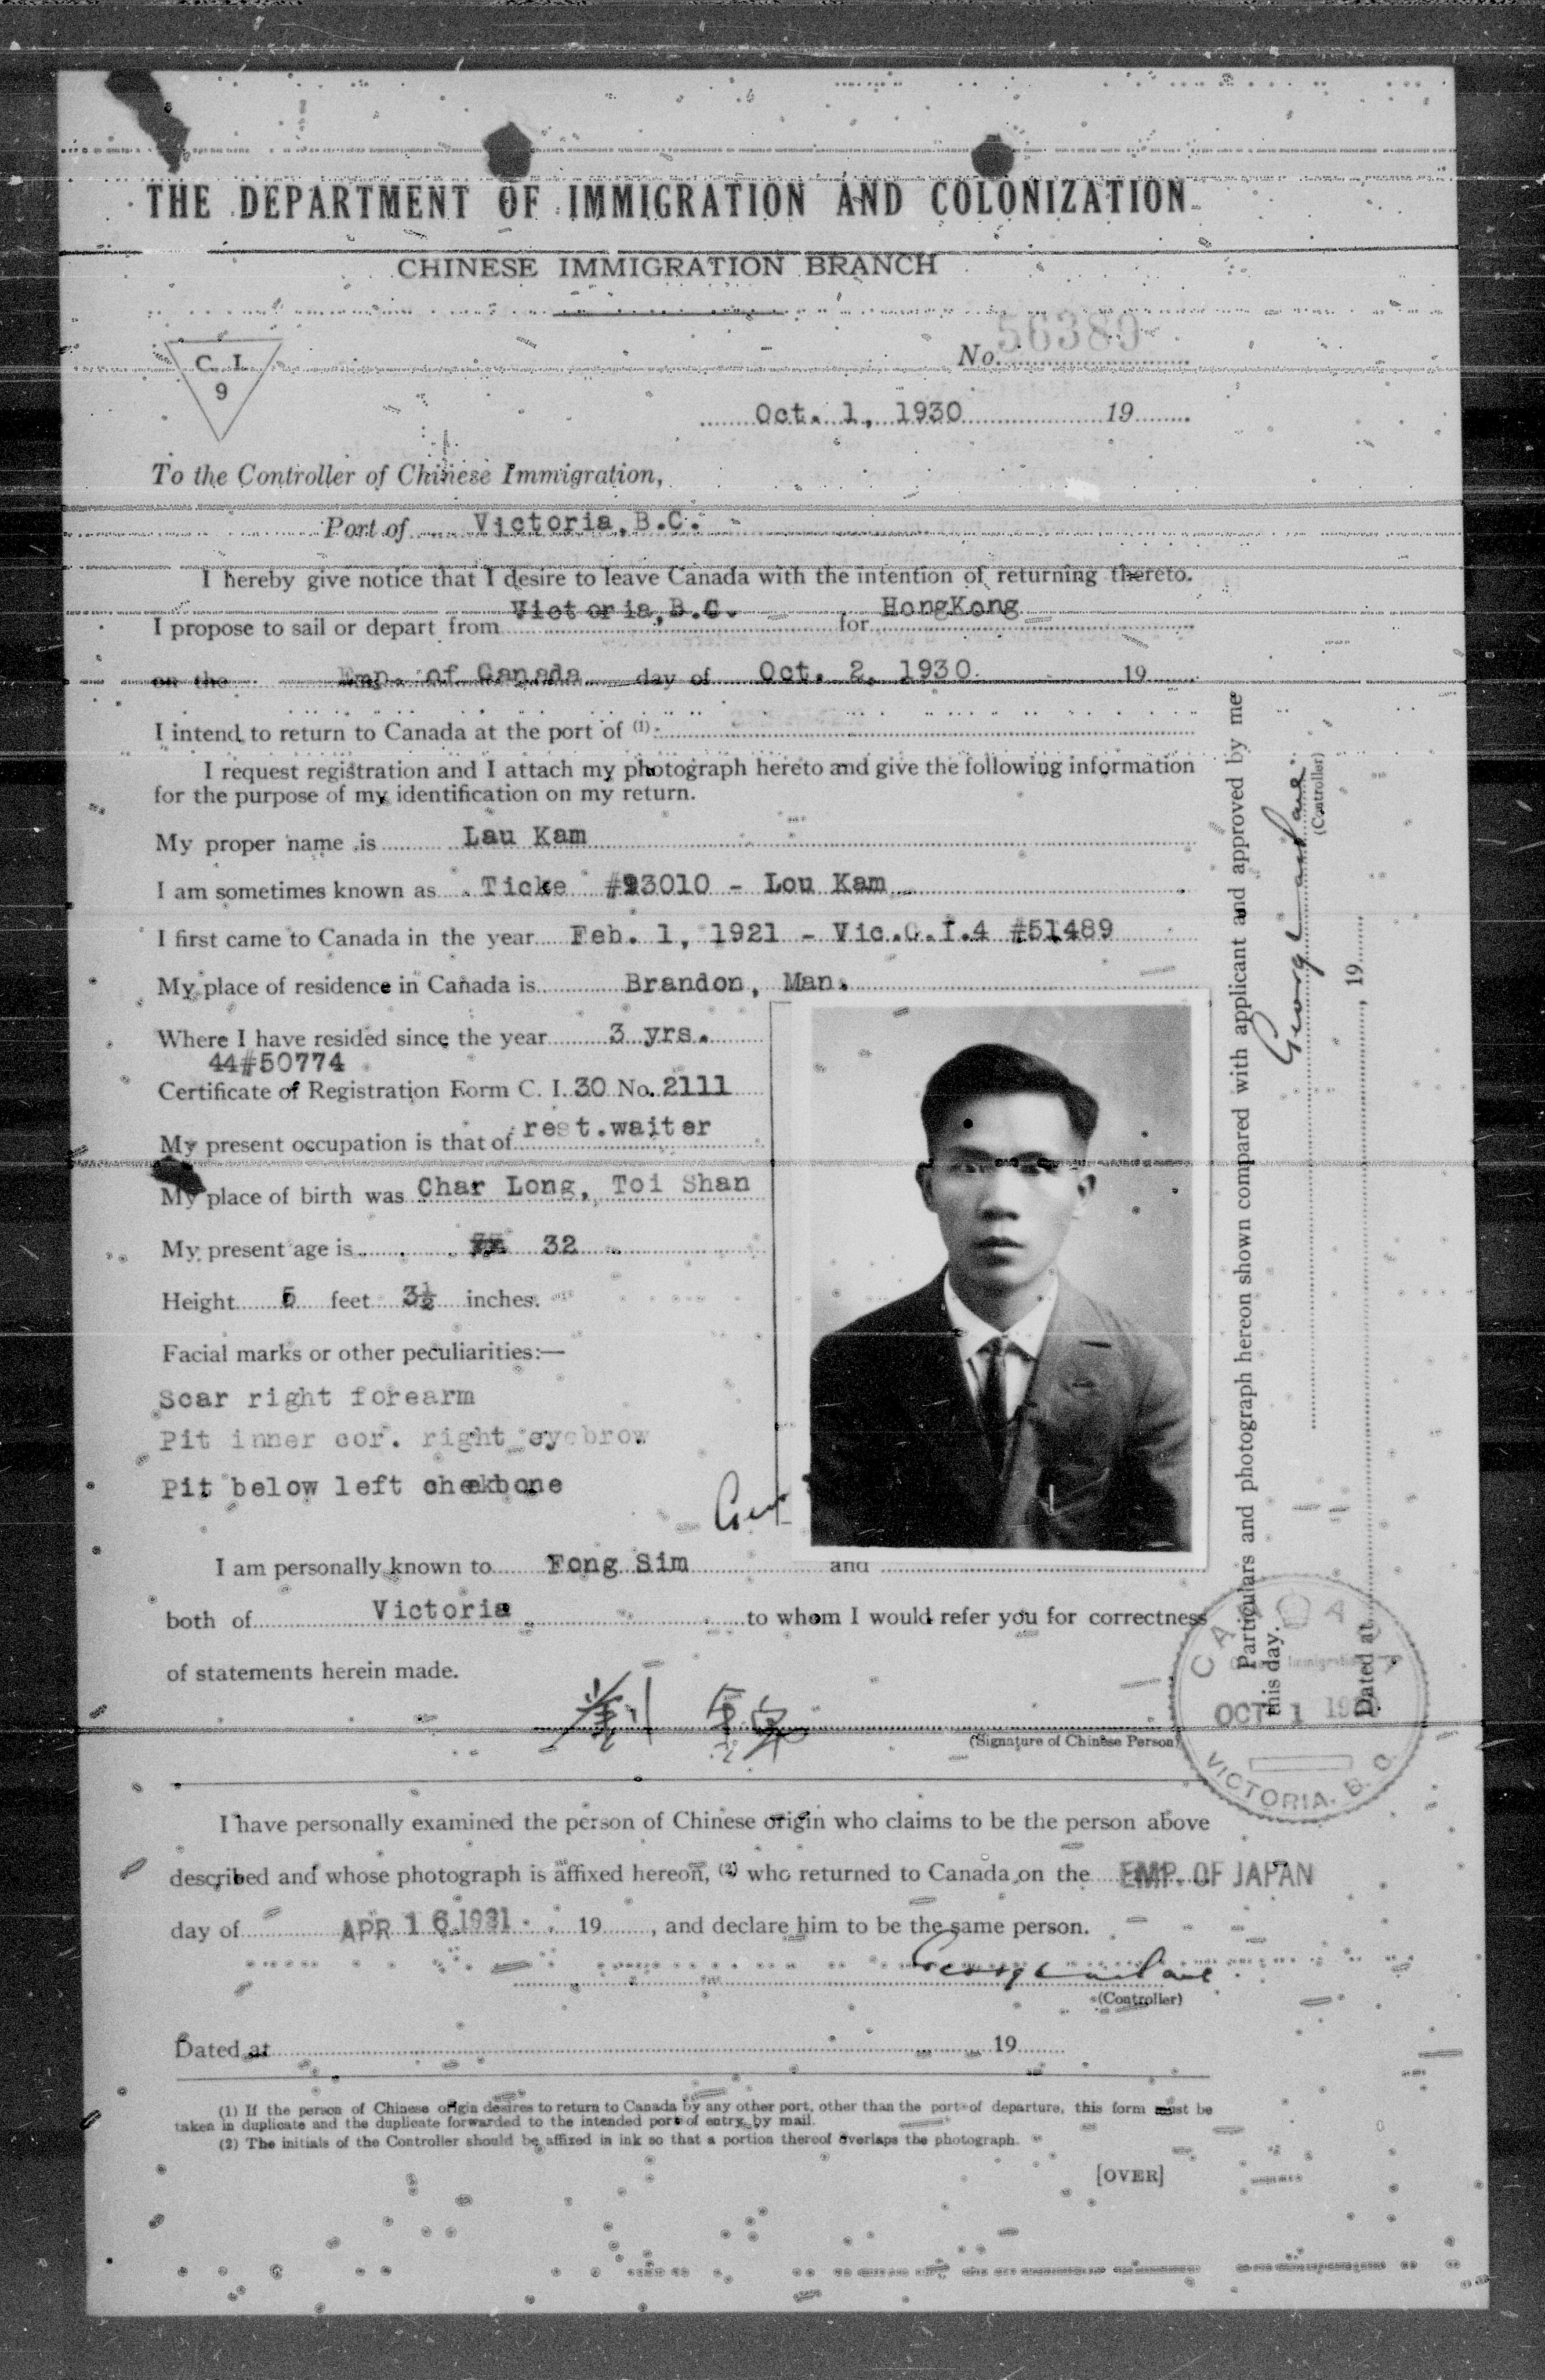 THE DEPARTMENT OF IMMIGRATION AND COLONIZATION
CHINESE IMMIGRATION BRANCH
C. I.
9
No. 56389
Oct. 1, 1930 19
To the Controller of Chinese Immigration,
Port of Victoria, B.C.
I hereby give notice that I desire to leave Canada with the intention of returning thereto.
I propose to sail or depart from Victoria, B.C. for HongKong
on the Emp. of Canada day of Oct. 2, 1930 19
I intend to return to Canada at the port of (1)
I request registration and I attach my photograph hereto and give the following information
for the purpose of my identification on my return.
My proper name is Lau Kam
I am sometimes known as Ticke #93010 - Lou Kam
I first came to Canada in the year Feb. 1, 1921 - Vic.C.I.4 #51489
My place of residence in Canada is Brandon, Man.
Where I have resided since the year 3 yrs.
44#50774
Certificate of Registration Form C. I. 30 No. 2111
My present occupation is that of rest.waiter
My place of birth was Char Long, Toi Shan
My present age is 32
Height 5 feet 3½ inches.
Facial marks or other peculiarities:—
Scar right forearm
Pit inner cor. right eyebrow
Pit below left chekbone
I am personally known to Fong Sim and
both of Victoria to whom I would refer you for correctness
of statements herein made.
劉
(Signature of Chinese Person)
Particulars and photograph hereon shown compared with applicant and approved by me
this day.
(Controller)
Dated at , 19
CANADA
Immigration
OCT 1 1930
VICTORIA. B. C.
I have personally examined the person of Chinese origin who claims to be the person above
described and whose photograph is affixed hereon, (2) who returned to Canada on the EMP. OF JAPAN
day of APR 16 1931 19 , and declare him to be the same person.
(Controller)
Dated at 19
(1) If the person of Chinese origin desires to return to Canada by any other port, other than the port of departure, this form must be
taken in duplicate and the duplicate forwarded to the intended port of entry by mail.
(2) The initials of the Controller should be affixed in ink so that a portion thereof overlaps the photograph.
[OVER]